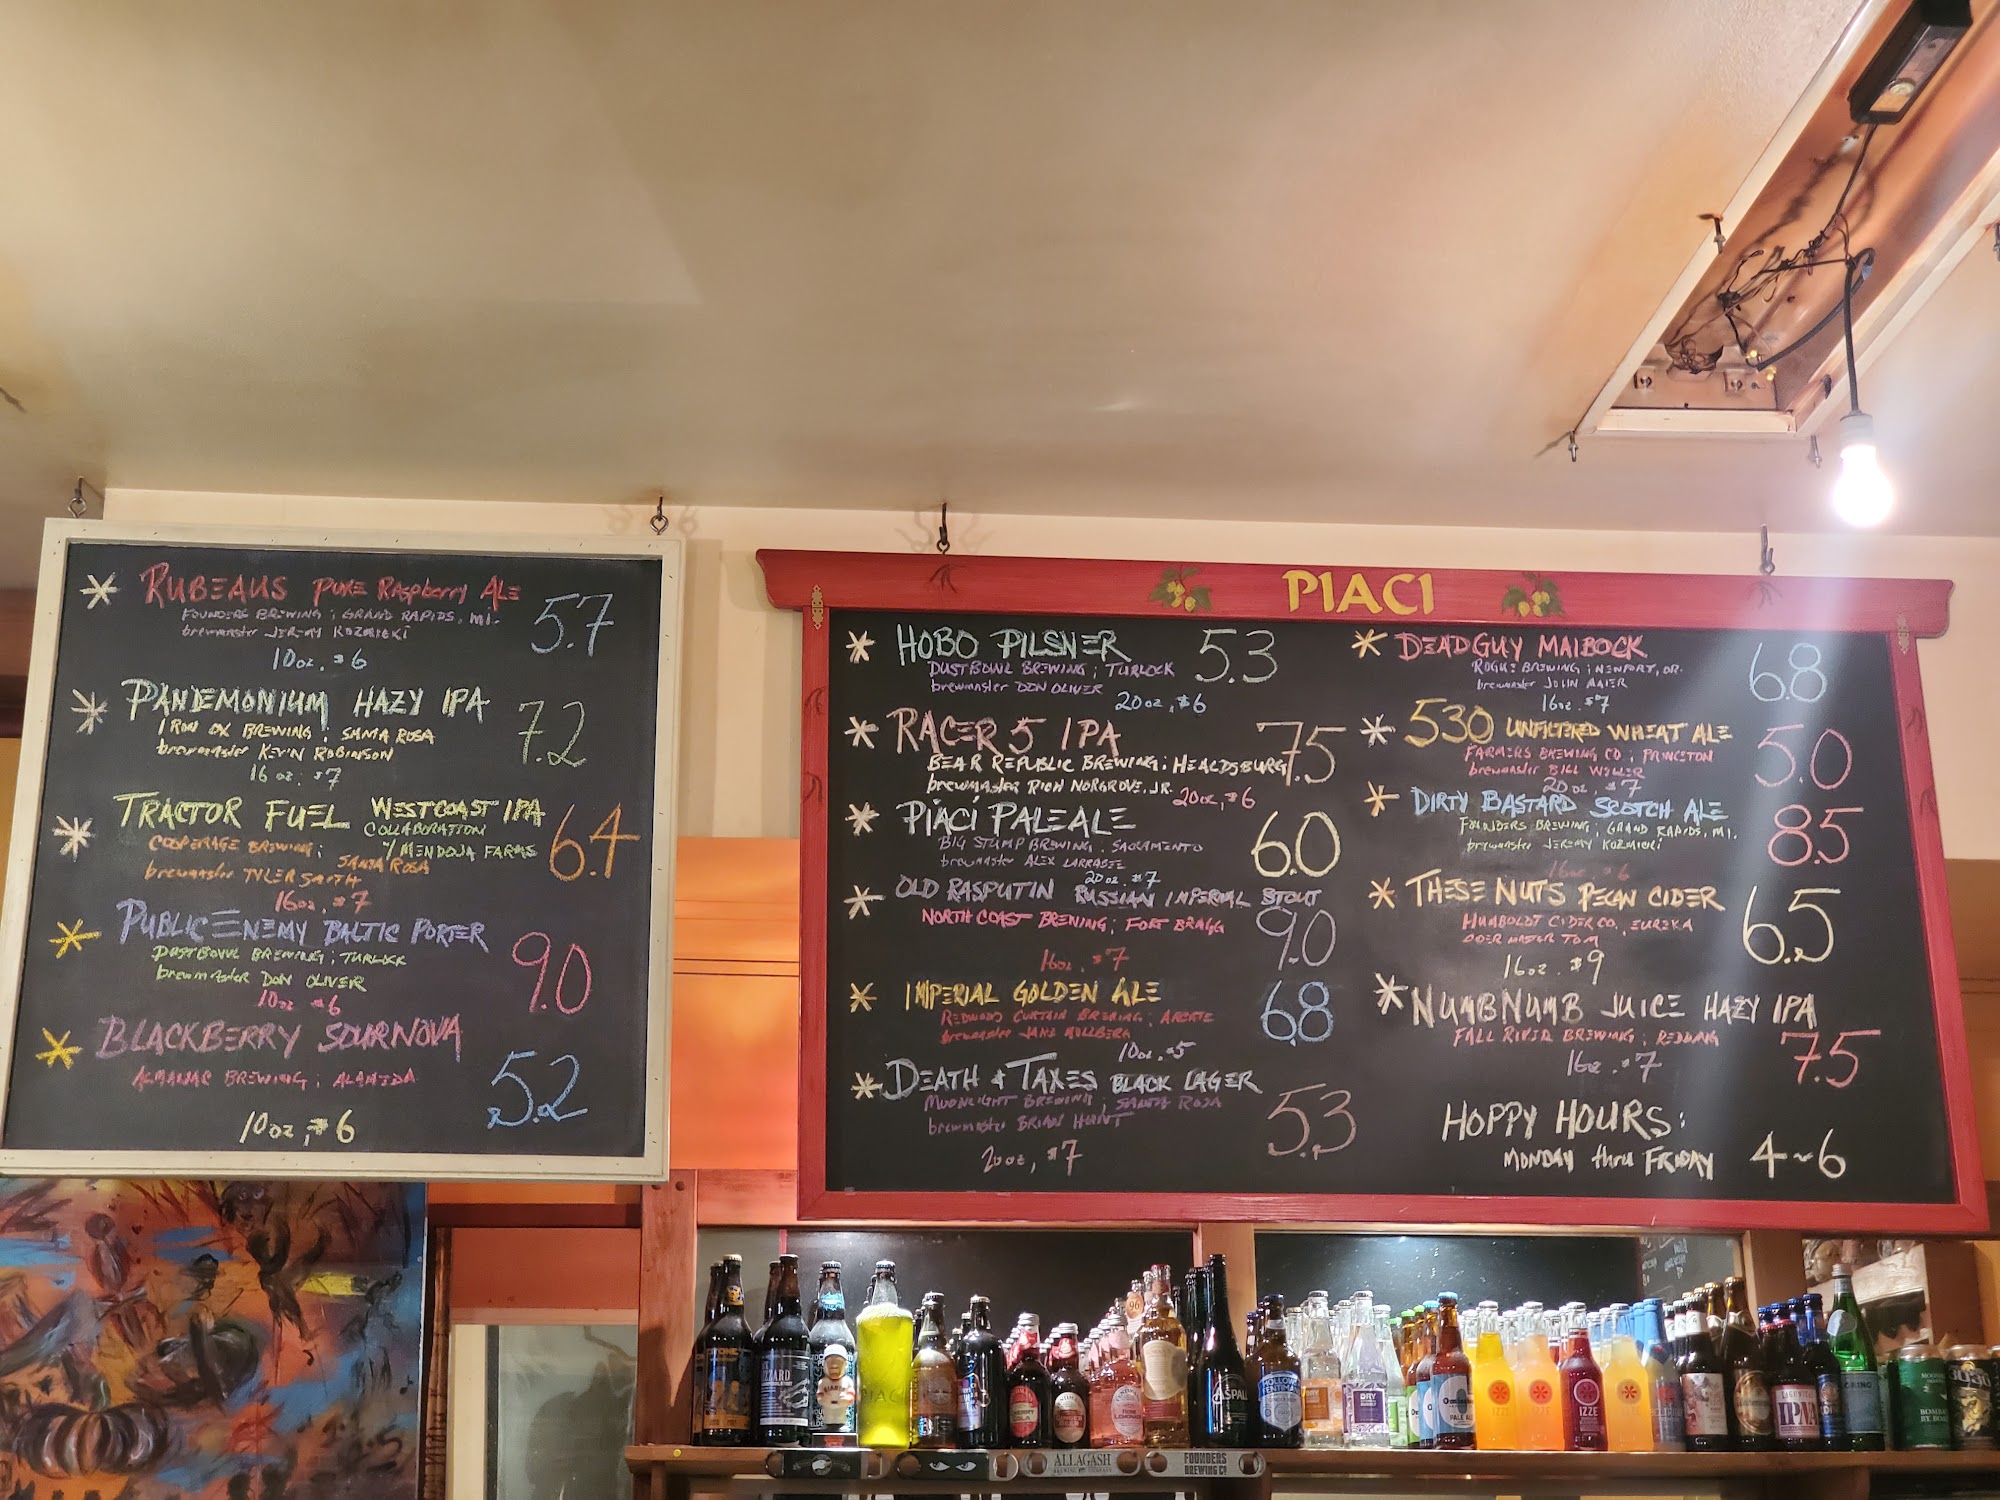 RUBEAUS PURE RASPBERRY ALE 5.7
FOUNDERS BREWING; GRAND RAPIDS, MI.
brewmaster JEREMY KOZMICKI
10oz. $6
PANDEMONIUM HAZY IPA 7.2
IRON OX BREWING; SANTA ROSA
brewmaster KEVIN ROBINSON
16oz. $7
TRACTOR FUEL WESTCOAST IPA 6.4
COLLABORATION
COOPERAGE BREWING; W/ MENDOJA FARMS
SANTA ROSA
brewmaster TYLER SMITH
16oz. $7
PUBLIC ENEMY BALTIC PORTER 9.0
DUSTBOWL BREWING; TURLOCK
brewmaster DON OLIVER
10oz $6
BLACKBERRY SOURNOVA 5.2
ALMANAC BREWING; ALAMEDA
10oz, $6
PIACI
HOBO PILSNER 5.3
DUSTBOWL BREWING; TURLOCK
brewmaster DON OLIVER
20oz, $6
RACER 5 IPA 7.5
BEAR REPUBLIC BREWING; HEALDSBURG
brewmaster RICH NORGROVE, JR.
20oz, $6
PIACI PALE ALE 6.0
BIG STUMP BREWING; SACRAMENTO
brewmaster ALEX LARRABEE
20oz. $7
OLD RASPUTIN RUSSIAN IMPERIAL STOUT 9.0
NORTH COAST BREWING; FORT BRAGG
16oz. $7
IMPERIAL GOLDEN ALE 6.8
REDWOOD CURTAIN BREWING; ARCATA
brewmaster JAKE MULLBERG
10oz. $5
DEATH & TAXES BLACK LAGER 5.3
MOONLIGHT BREWING; SANTA ROSA
brewmaster BRIAN HUNT
20oz, $7
DEADGUY MAIBOCK 6.8
ROGUE BREWING; NEWPORT, OR.
brewmaster JOHN MAIER
16oz. $7
530 UNFILTERED WHEAT ALE 5.0
FARMERS BREWING CO; PRINCETON
brewmaster BILL WELLER
20oz, $7
DIRTY BASTARD SCOTCH ALE 8.5
FOUNDERS BREWING; GRAND RAPIDS, MI.
brewmaster JEREMY KOZMICKI
16oz. $6
THESE NUTS PECAN CIDER 6.5
HUMBOLDT CIDER CO., EUREKA
CIDER MASTER TOM
16oz. $9
NUMBNUMB JUICE HAZY IPA 7.5
FALL RIVER BREWING; REDDING
16oz. $7
HOPPY HOURS:
MONDAY thru FRIDAY 4~6
PIACI
ASPALL
DRY
DRY
IZZE
IZZE
IPNA
ALLAGASH
BREWING COMPANY
FOUNDERS
BREWING CO